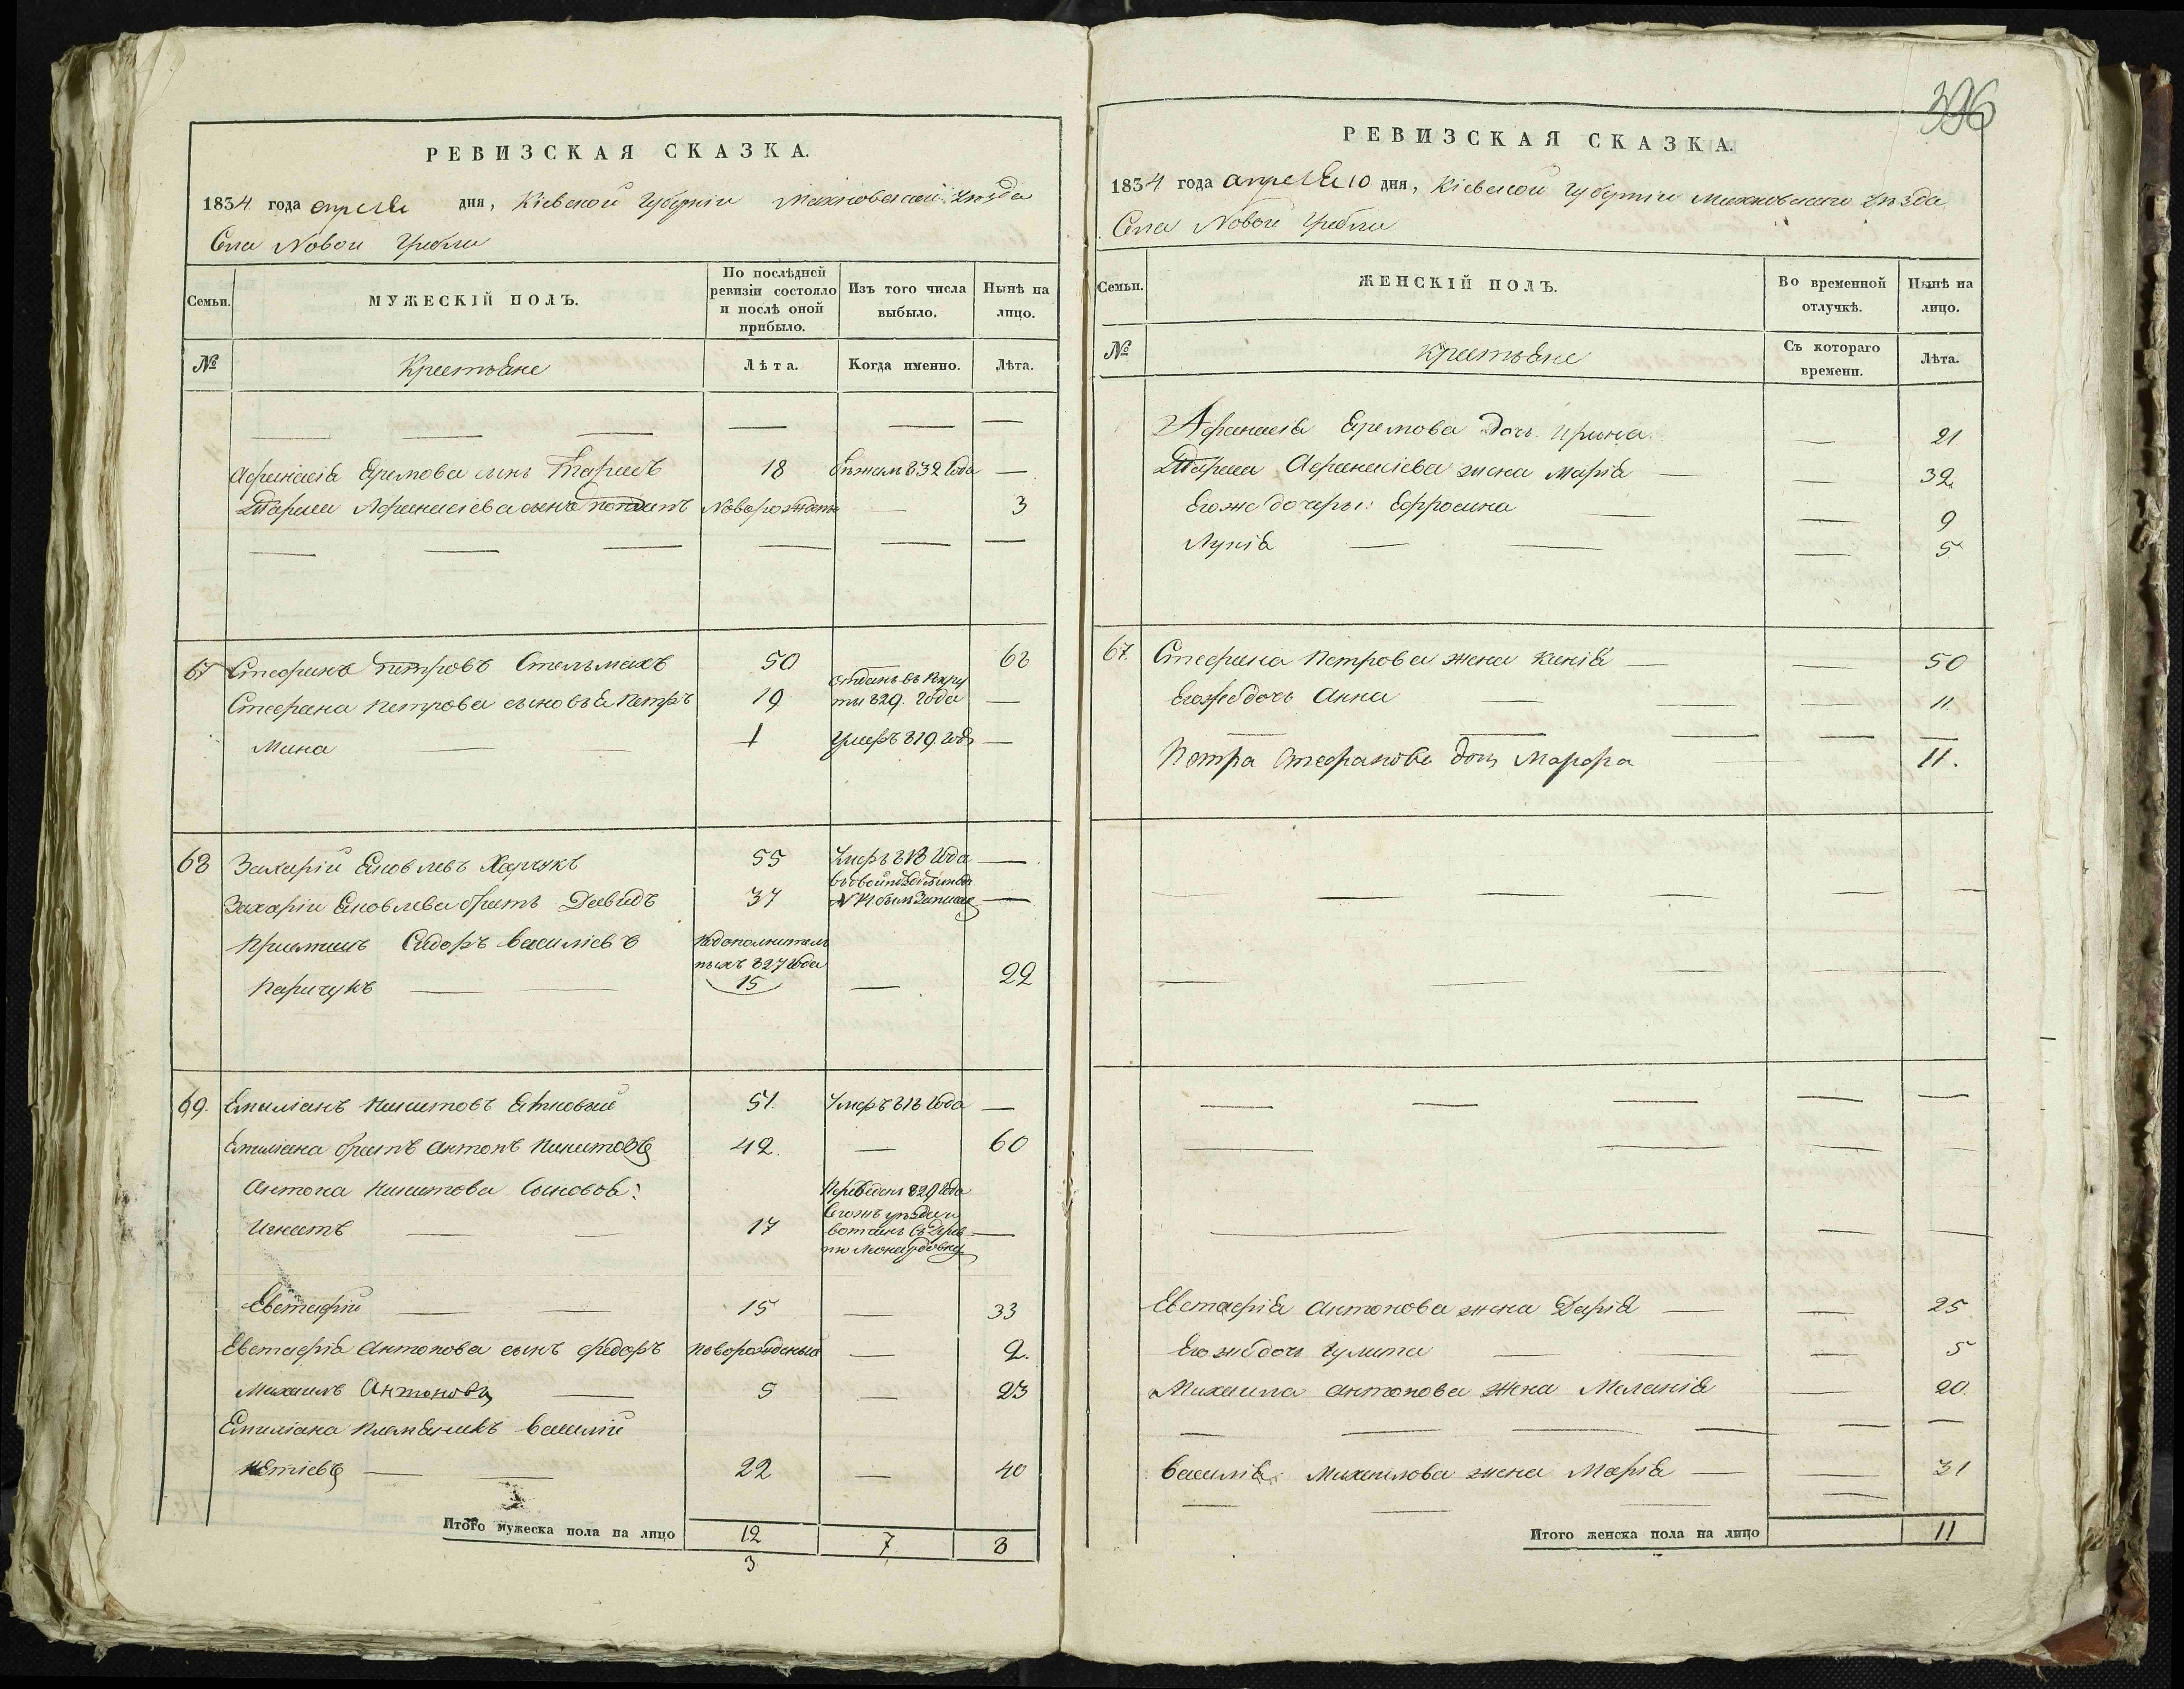 396
РЕВИЗСКАЯ СКАЗКА.
1834 года апреля дня, Кіевской Губерніи Махновскаго уѣзда
Села Новой Гребли
Семьи. МУЖЕСКІЙ ПОЛЪ. По послѣдней ревизіи состояло и послѣ оной прибыло. Изъ того числа выбыло. Нынѣ на лицо.
№ Крестьяне Лѣта. Когда именно. Лѣта.
Афанасія Еремова сынъ Тарасъ 18 бѣжалъ 832 года —
Тараса Афанасіева сынъ новорожденъ 3
67 Стефанъ Петровъ Стельмахъ 50 — 68
Стефана Петрова сыновья Петръ 19 отданъ въ рекруты 829. года —
Мина — — 1 Умеръ 819. года —
68 Захарій Яковлевъ Харчукъ 55 Умеръ 818 года —
Захарія Яковлева братъ Давидъ 37 № 74 —
Приемышъ Сидоръ Василіевъ
по дополнительнымъ 827 года
15 — 22
69. Емиліанъ Никитовъ 51. Умеръ 818 года —
Емиліана братъ Антонъ Никитовъ 42. — 60
Антона Никитова Сыновья:
Игнатъ — — 17 Переведенъ 829 года —
Евстафій — — 15 — 33
Евстафія Антонова сынъ Федоръ новорожденный — 2.
Михаилъ Антоновъ — 5 — 23
Емиліана племяникъ Василій
— — 22 — 40
Итого мужеска пола на лицо 12 7 8
3
РЕВИЗСКАЯ СКАЗКА.
1834 года апреля 10 дня, Кіевской Губерніи Махновскаго уѣзда
Села Новой Гребли
Семьи. ЖЕНСКІЙ ПОЛЪ. Во временной отлучкѣ. Нынѣ на лицо.
№ Крестьяне Съ котораго времени. Лѣта.
Афанасія Еремова дочь Ирина — 21
Тараса Афанасіева жена Марія — — 32
Его же дочери: Ефросина — — 9
Лукія — — — 5
67. Стефана Петрова жена Ксенія — — 50
Его же дочь Анна — — — 11.
Петра Стефанова дочь Марфа — 11.
Евстафія Антонова жена Дарія — — 25
Его же дочь Гулита — — — 5
Михаила Антонова жена Меланія — 20.
Василія Михаилова жена Марія — — 31
Итого женска пола на лицо 11